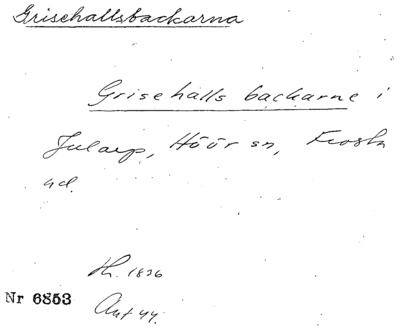 Grisehallsbackarna
Grisehalls backarne i
Jularp, Höör sn, Frosta
hd.
Hr. 1836
Nr 6853
Ant 44.